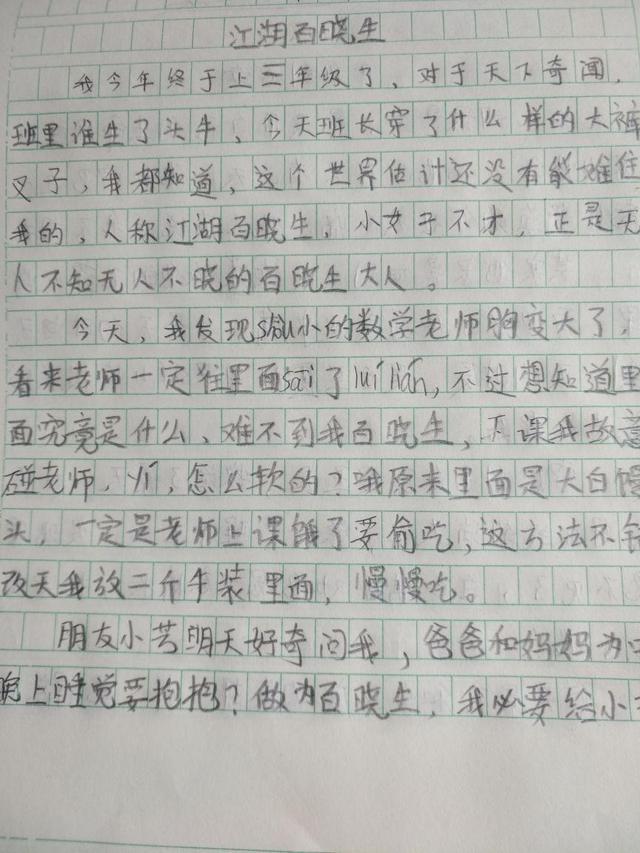 江湖百晓生
我今年终于上三年级了，对于天下奇闻，
班里谁生了头牛，今天班长穿了什么样的大裤
叉子，我都知道，这个世界估计还没有能难住
我的，人称江湖百晓生，小女子不才，正是无
人不知无人不晓的百晓生大人。
今天，我发现shòu小的数学老师胸变大了，
看来老师一定往里面sāi了liú lián，不过想知道里
面究竟是什么、难不到我百晓生，下课我故意
碰老师，yí，怎么软的？哦原来里面是大白馒
头，一定是老师上课饿了要偷吃，这方法不错
改天我放二斤牛装里面，慢慢吃。
朋友小芳明天好奇问我，爸爸和妈妈为
晚上睡觉要抱抱？做为百晓生，我必要给小